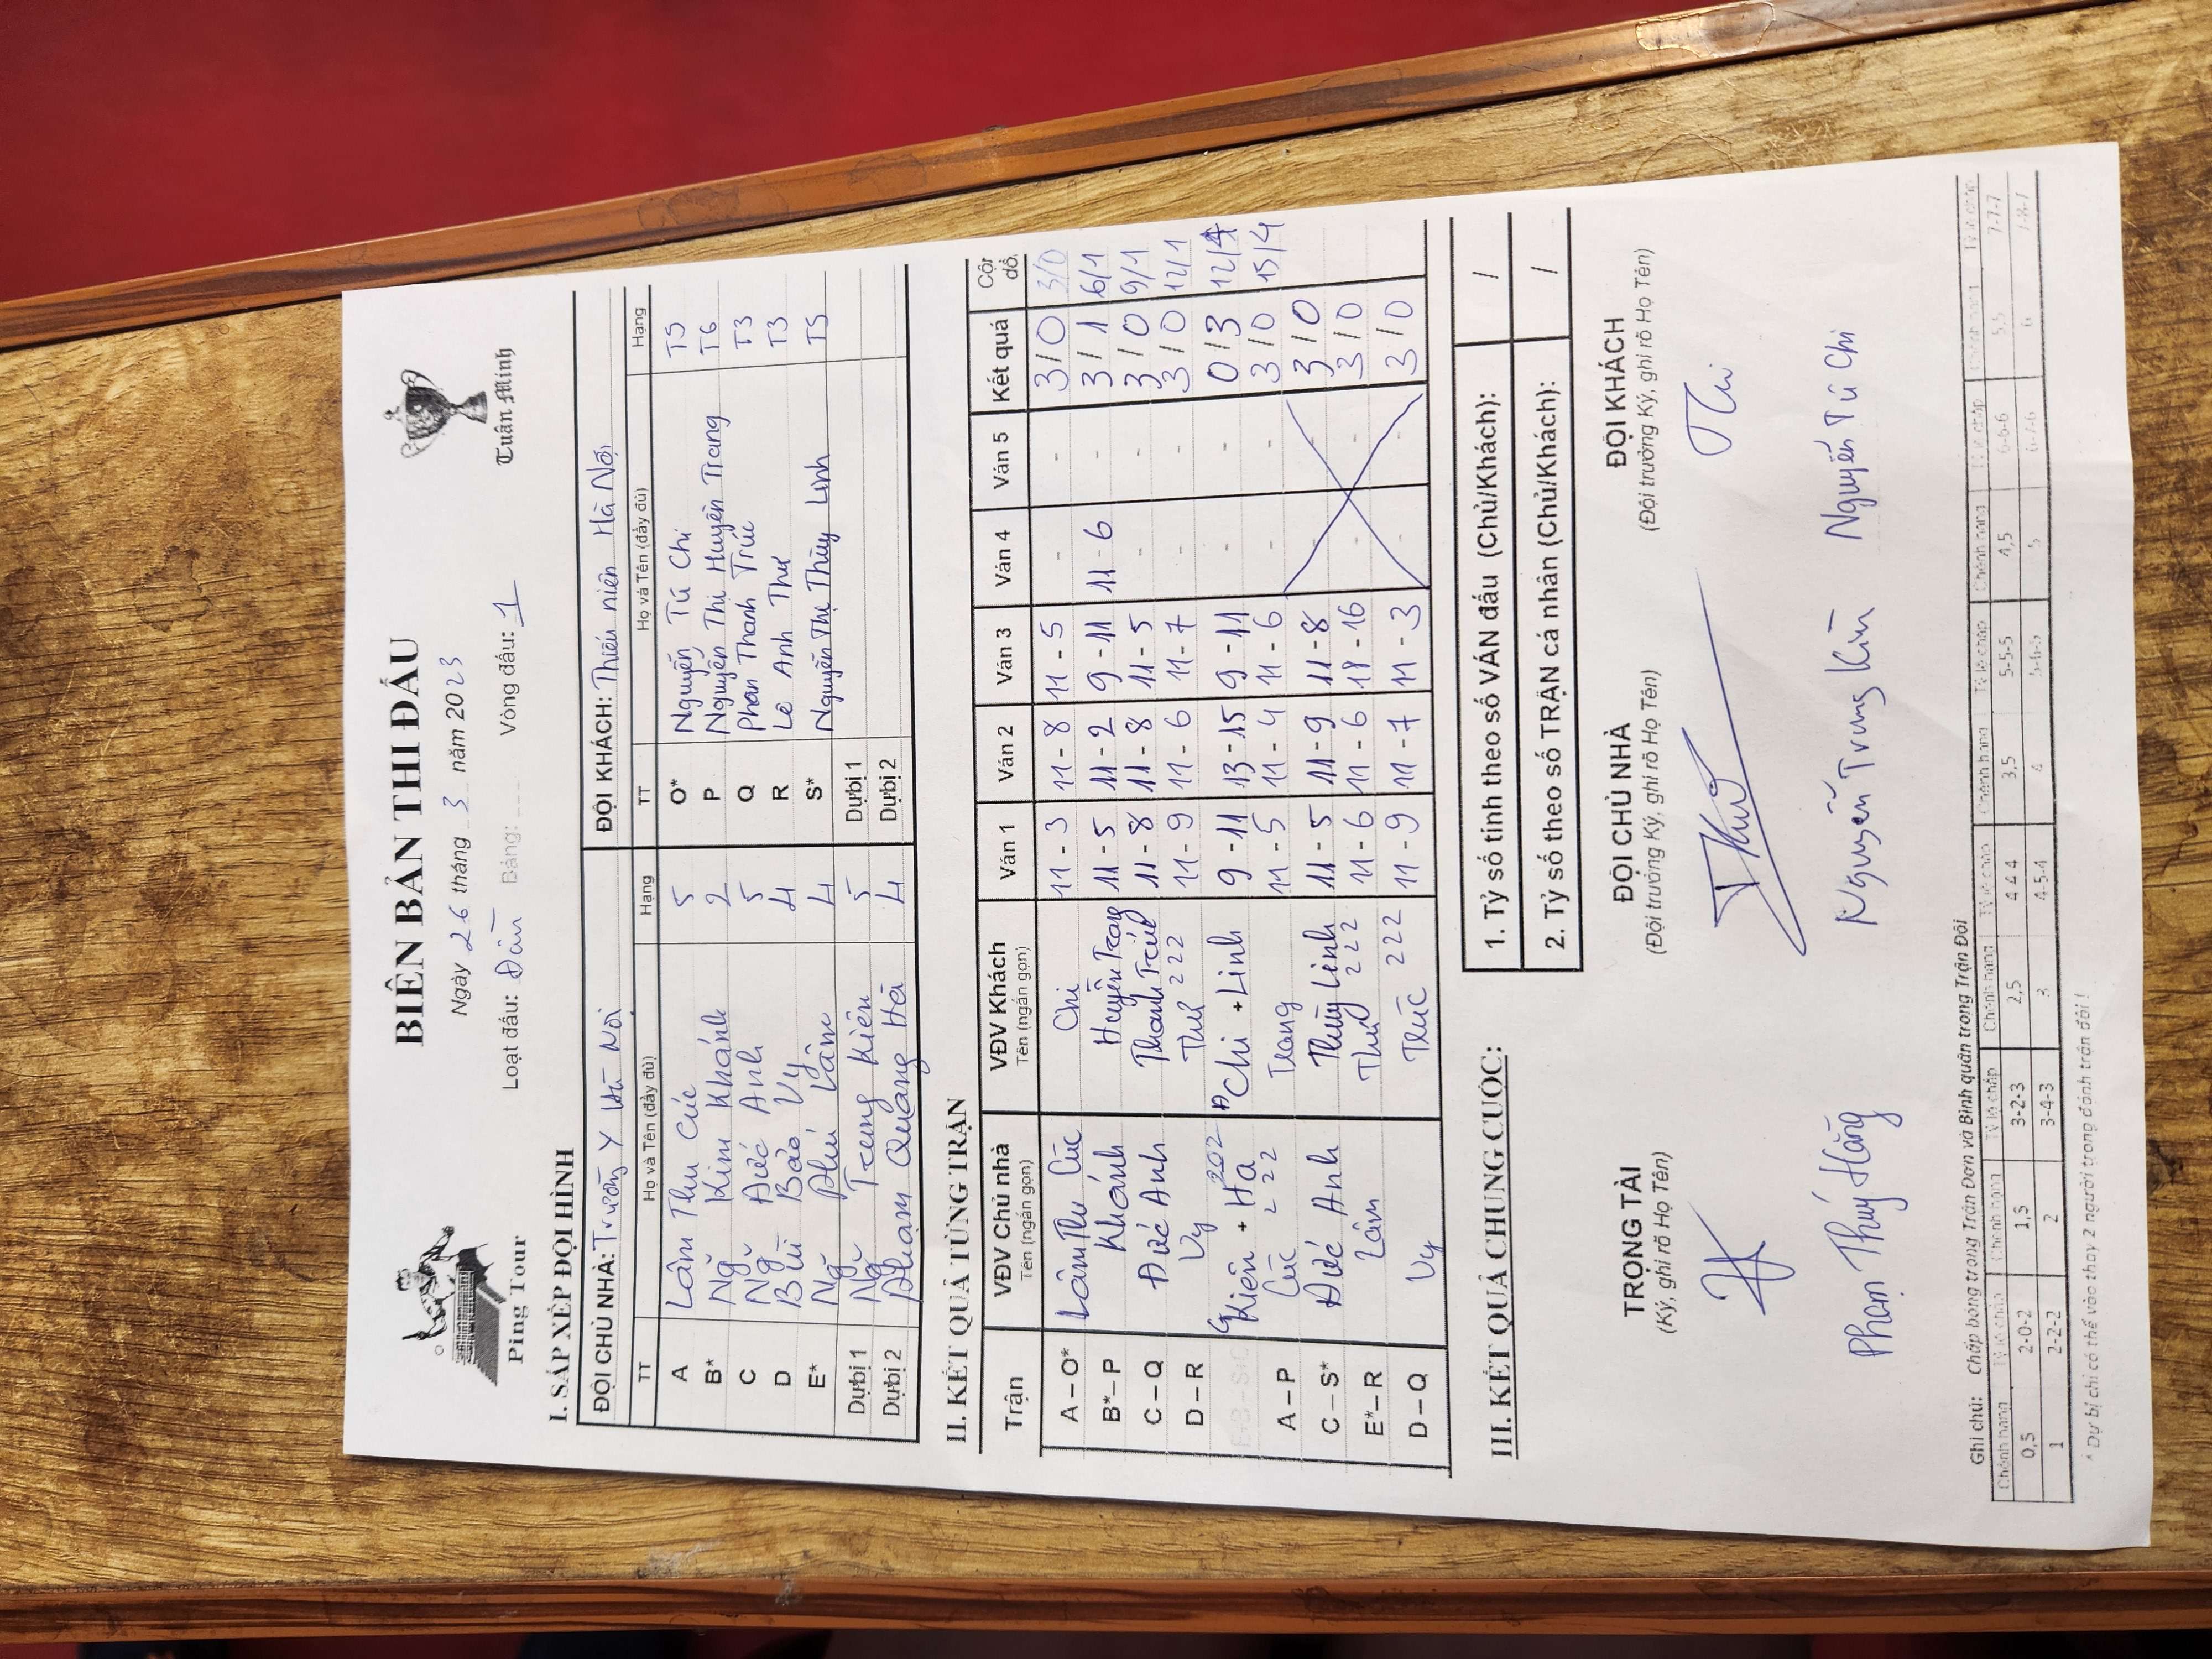 BIÊN BẢN THI ĐẤU
Ngày 26 tháng 3 năm 2023
Ping Tour
Loạt đấu: Bảng: Vòng đấu: 1
Tuấn Minh
I. SẮP XẾP ĐỘI HÌNH
ĐỘI CHỦ NHÀ: Trường Y Hà Nội ĐỘI KHÁCH: Thiếu niên Hà Nội
TT Họ và Tên (đầy đủ) Hạng TT Họ và Tên (đầy đủ) Hạng
A Lâm Thu Cúc 5 O* Nguyễn Tú Chi T5
B* Ng~ Kim Khánh 2 P Nguyễn Thị Huyền Trang T6
C Ng~ Đức Anh 5 Q Phan Thanh Trúc T3
D Bùi Bảo Vy 4 R Lê Anh Thư T3
E* Ng~ Phú Lâm 4 S* Nguyễn Thị Thùy Linh T5
Dự bị 1 Ng~ Trung Kiên 5 Dự bị 1
Dự bị 2 Phạm Quang Hải 4 Dự bị 2
II. KẾT QUẢ TỪNG TRẬN
Trận VĐV Chủ nhà VĐV Khách Ván 1 Ván 2 Ván 3 Ván 4 Ván 5 Kết quả
Tên (ngắn gọn) Tên (ngắn gọn)
A – O* Lâm Thu Cúc Chi 11 - 3 11 - 8 11 - 5 - - 3/0 3/0
B* – P Khánh Huyền Trang 11 - 5 11 - 2 9 - 11 11 - 6 - 3/1 6/1
C – Q Đức Anh Thanh Trúc 11 - 8 11 - 8 11 - 5 - - 3/0 9/1
D – R Vy Thư 222 11 - 9 11 - 6 11 - 7 - - 3/0 12/1
Kiên + Hà 202 Chi + Linh 9 - 11 13 - 15 9 - 11 - - 0/3 12/4
A – P Cúc 222 Trang 11 - 5 11 - 4 11 - 6 - - 3/0 15/4
C – S* Đức Anh Thùy Linh 11 - 5 11 - 9 11 - 8 3/0
E* – R Lâm Thư 222 11 - 6 11 - 6 18 - 16 - - 3/0
D – Q Vy Trúc 222 11 - 9 11 - 7 11 - 3 - - 3/0
III. KẾT QUẢ CHUNG CUỘC:
1. Tỷ số tính theo số VÁN đấu (Chủ/Khách): /
2. Tỷ số theo số TRẬN cá nhân (Chủ/Khách): /
TRỌNG TÀI ĐỘI CHỦ NHÀ ĐỘI KHÁCH
(Ký, ghi rõ Họ Tên) (Đội trưởng Ký, ghi rõ Họ Tên) (Đội trưởng Ký, ghi rõ Họ Tên)
Phạm Thúy Hằng Nguyễn Trung Kiên Nguyễn Tú Chi
Ghi chú: Chấp bóng trong Trận Đơn và Bình quân trong Trận Đôi
Chênh hạng Tỷ lệ chấp Chênh hạng Tỷ lệ chấp Chênh hạng Tỷ lệ chấp Chênh hạng Tỷ lệ chấp Chênh hạng Tỷ lệ chấp Chênh hạng Tỷ lệ chấp
0,5 2-0-2 1,5 3-2-3 2,5 4-4-4 3,5 5-5-5 4,5 6-6-6 5,5 7-7-7
1 2-2-2 2 3-4-3 3 4-5-4 4 5-6-5 5 6-7-6 6 7-8-7
* Dự bị chỉ có thể vào thay 2 người trong đánh trận đôi !